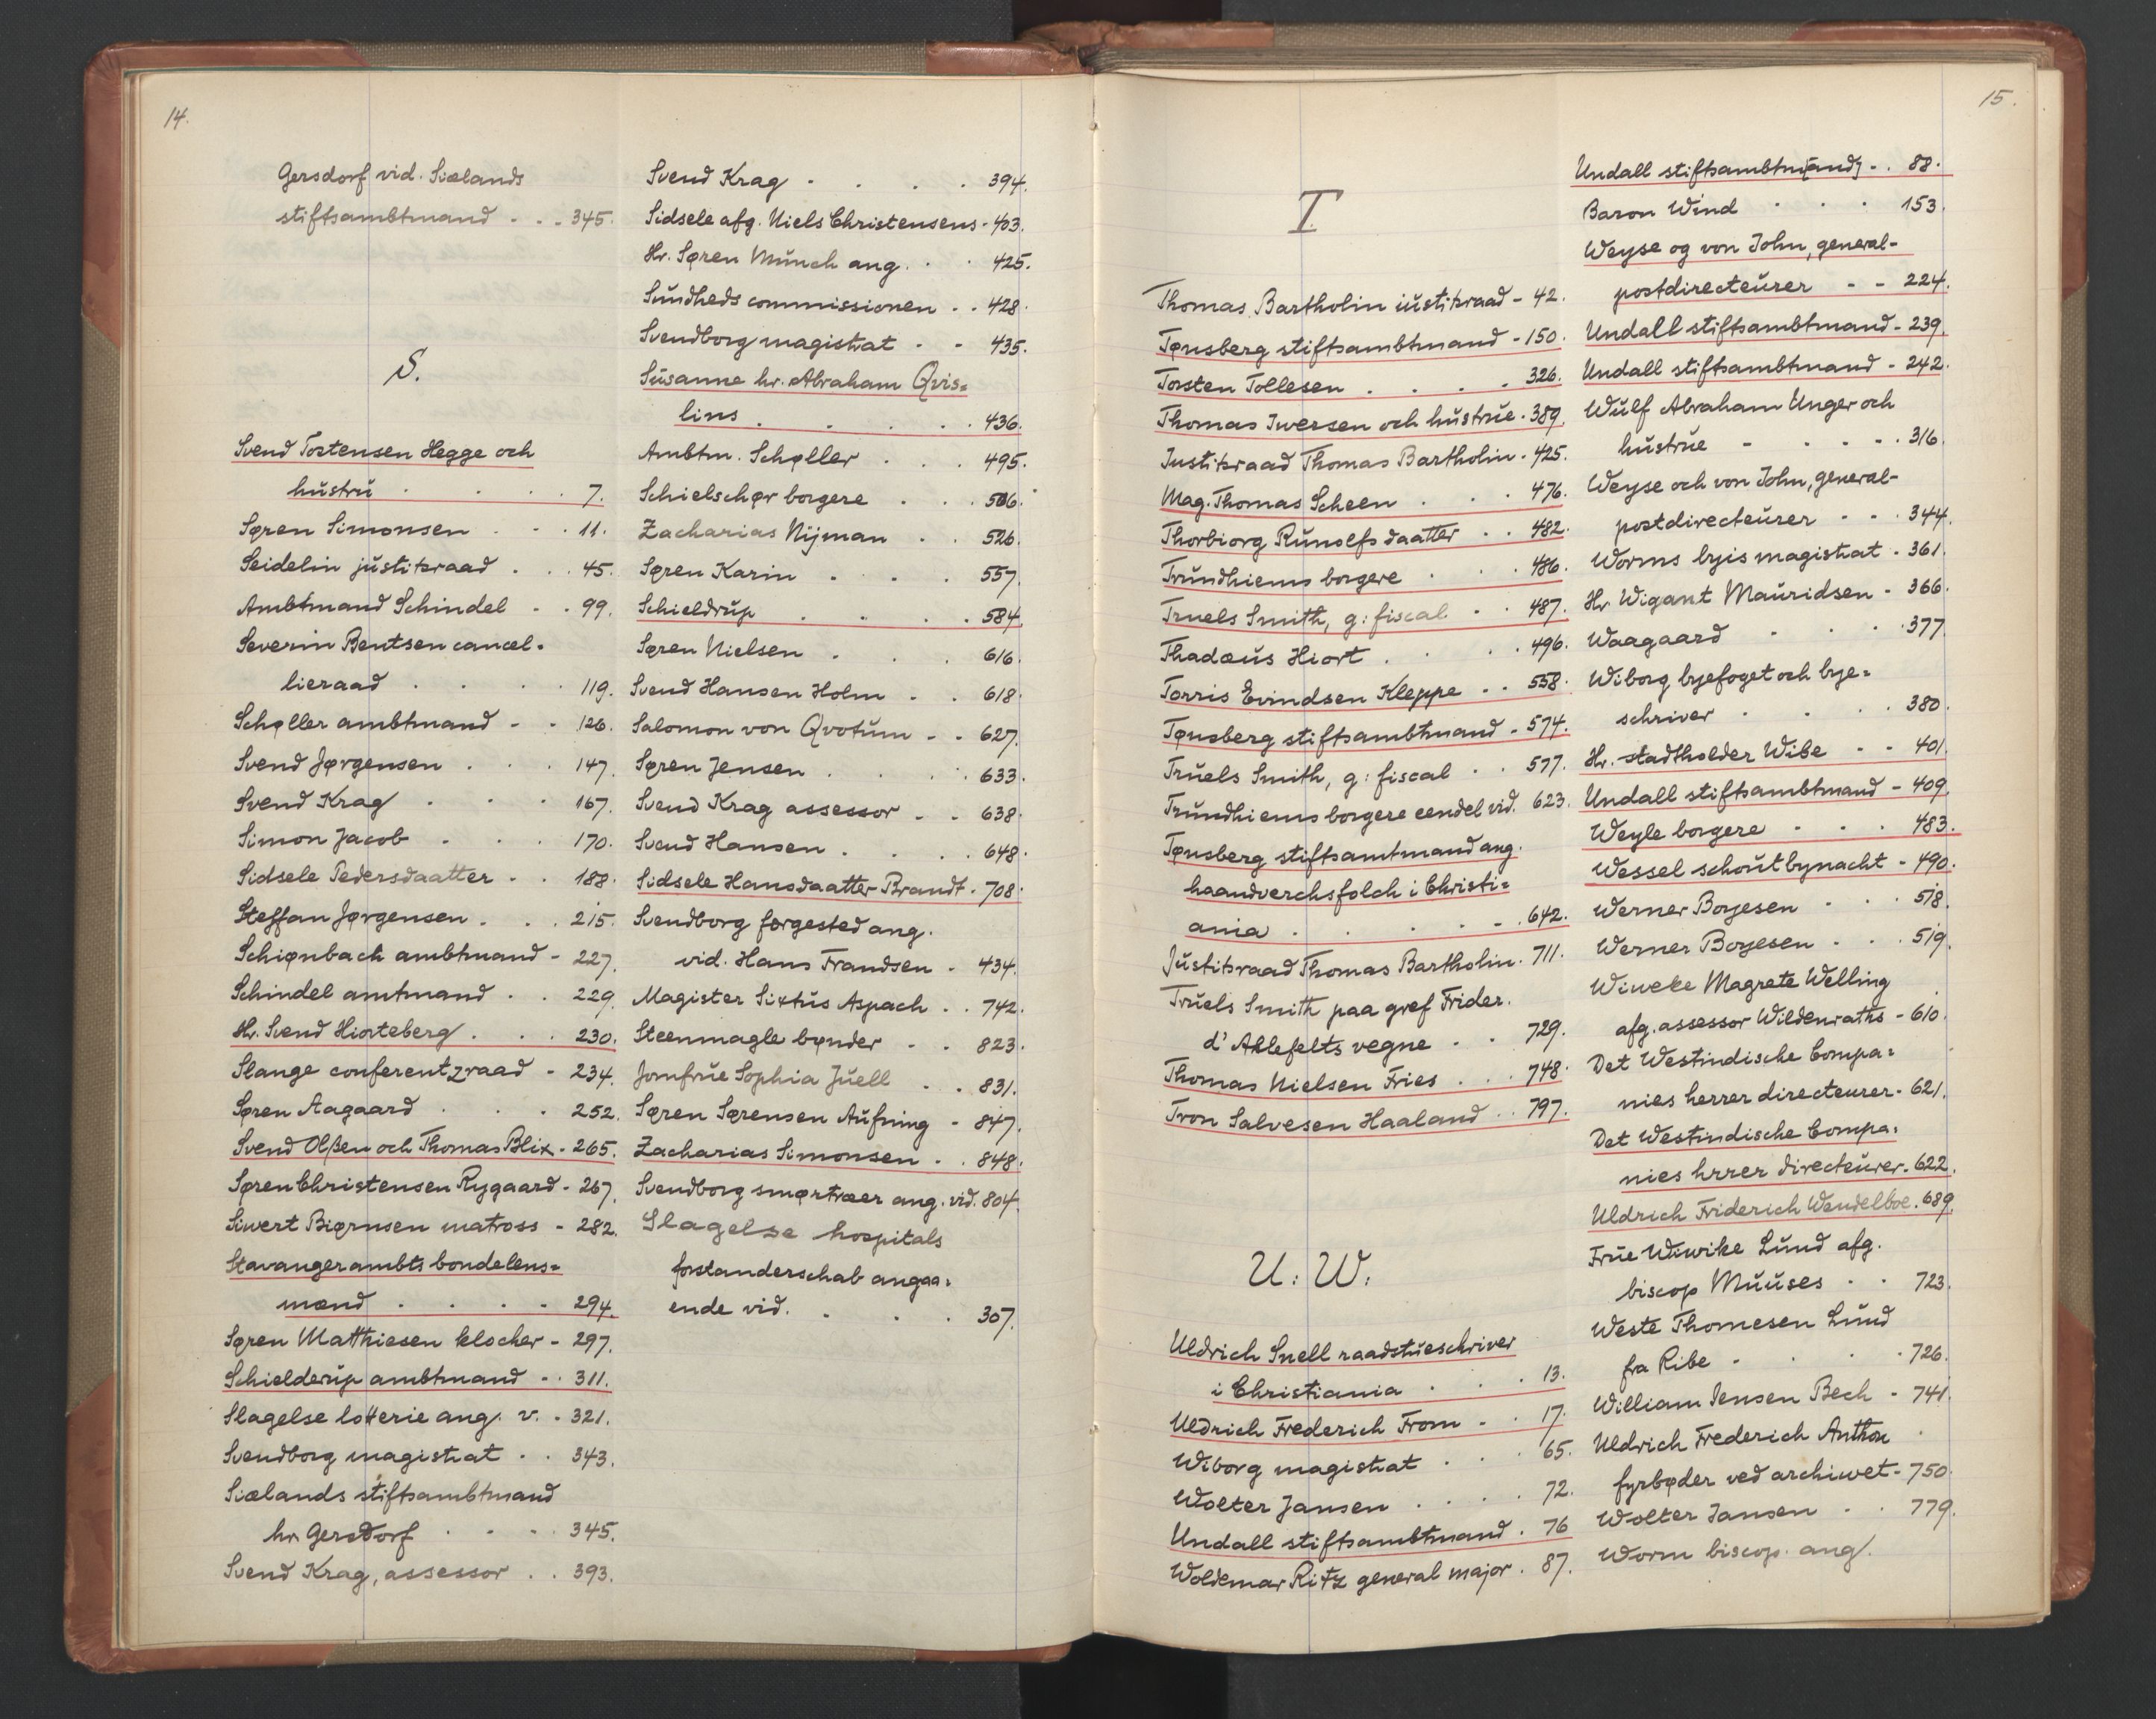 14.
Gersdorf vid. Siælands
stiftsambtmand - - - 345.
S.
Svend Tostensen Hegge och
hustru . . . . 7.
Søren Simonsen - - 11.
Seidelin justitsraad . . . 45.
Ambtmand Schindel - - 99.
Severin Bentsen cancel-
lieraad . . . . 119.
Schøller ambtmand - - 126.
Svend Jørgensen . . . 147.
Svend Krag . . . 167.
Simon Jacob - . . 170.
Sidsele Pedersdaatter . . 188.
Steffan Jørgensen . . . 215.
Schiønbach ambtmand - 227.
Schindel amtmand . . 229.
Hr. Svend Hiorteberg . . . 230.
Slange conferentzraad - 234.
Søren Aagaard . . . 252.
Svend Olßen och Thomas Blix - 265.
Søren Christensen Rygaard - 267.
Siwert Biørnsen matross - 282.
Stavanger ambts bondelens=
mænd . . . - 294.
Søren Matthiesen klocher - 297.
Schielderup ambtmand - . 311.
Slagelse lotterie ang. v. - 321.
Svendborg magistrat . . 343.
Siælands stiftsambtmand
hr. Gersdorf . . . 345.
Svend Krag, assessor . . 393.
Svend Krag - . . . 394.
Sidsele afg. Niels Christensens - 403.
Hr. Søren Munch ang. . . 425.
Sundheds commissionen . . 428.
Svendborg magistrat - - 435.
Susanne hr. Abraham Qvis=
lins . . . . . 436.
Ambtm. Schøller . . . 495.
Schielschør borgere . . . 506.
Zacharias Nijman . . 526.
Søren Karin . . . . 557.
Schieldrup . . . . 584.
Søren Nielsen . . . 616.
Svend Hansen Holm - . 618.
Salomon von Qvotum - - 627.
Søren Jensen . . . . 633.
Svend Krag assessor - - 638.
Svend Hansen . . . . 648.
Sidsele Hansdaatter Brandt . 708.
Svendborg færgested ang.
vid. Hans Frandsen - 434.
Magister Sixtus Aspach . . 742.
Steenmagle bønder - . 823.
Jomfrue Sophia Juell . . 831.
Søren Sørensen Aufning - 847.
Zacharias Simonsen - . 848.
Svendborg smørtræer ang. vid. 804.
Slagelse hospitals
forstanderschab angaa=
ende vid. . . . 307.
15.
T.
Thomas Bartholin iustitsraad - 42.
Tønsberg stiftsambtmand - 150.
Torsten Tollesen . . . . 326.
Thomas Iversen och hustrue . 389.
Justitsraad Thomas Bartholin . 425.
Mag. Thomas Scheen . . . 476.
Thorbiorg Runolfsdaatter . . 482.
Trundhiems borgere . . . 486.
Truels Smith, g: fiscal - . 487.
Thadæus Hiort . . . . 496.
Torris Evindsen Kleppe . . 558.
Tønsberg stiftsambtmand - 574.
Truels Smith, g: fiscal . . 577.
Trundhiems borgere eendel vid. 623.
Tønsberg stiftsamtmand ang.
haandverchsfolch i Christi=
ania . . . . - . 642.
Justitsraad Thomas Bartholin . 711.
Truels Smith paa gref Frider.
d' Ahlefelts vegne . . 729.
Thomas Nielsen Fries . . . 748.
Tron Salvesen Haaland . . 797.
U: W:
Uldrich Snell raadstueschriver
i Christiania . . . 13.
Uldrich Frederich From - . 17.
Wiborg magistrat . . . 65.
Wolter Jansen . . . . 72.
Undall stiftsambtmand . 76
Woldemar Ritz general major . 87.
Undall stiftsambtm[and] - . 88.
Baron Wind . . . 153.
Weyse og von John, general-
postdirecteurer - - 224.
Undall stiftsambtmand - 239.
Undall stiftsambtmand - 242.
Wulf Abraham Unger och
hustrue - . . - . 316.
Weyse och von John, general-
postdirecteurer - - . 344.
Worms byis magistrat - 361.
Hr. Wigant Mauridsen - 366.
Waagaard . . . . 377.
Wiborg byefoget och bye=
schriver . . . . 380.
Hr. stadtholder Wibe - - 401.
Undall stiftsambtmand - 409.
Weyle borgere - . . 483.
Wessel schoutbynacht - 490.
Werner Boyesen - . . 518.
Werner Boyesen - . . 519.
Wiweke Magrete Welling
afg. assessor Wildenraths - 610.
Det Westindische Compa=
nies herrer directeurer - 621.
Det Westindische Compa=
nies hrrer directeurer - 622.
Uldrich Friderich Wendelboe . 689.
Frue Wiwike Lund afg.
biscop Muuses . . 723.
Weste Thomesen Lund
fra Ribe - . . . 726.
William Jensen Bech - 741.
Uldrich Frederich Anthon
fyrbøder ved archiwet - 750.
Wolter Jansen . . 779.
Worm biscop. ang.